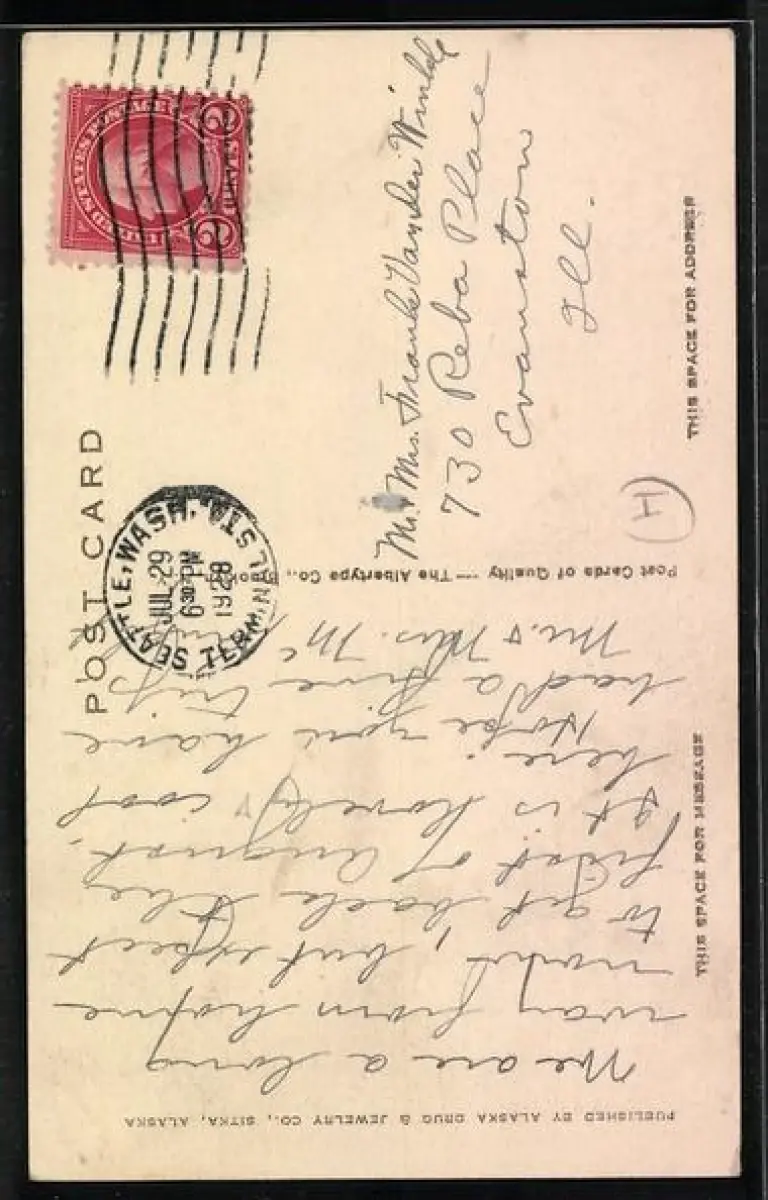 POST CARD
UNITED STATES POSTAGE
2 2
SEATTLE, WASH.
TERMINAL STA.
JUL 29
6 30 PM
1928
THIS SPACE FOR MESSAGE
THIS SPACE FOR ADDRESS
PUBLISHED BY ALASKA DRUG & JEWELRY CO., SITKA, ALASKA
Post Cards of Quality — The Albertype Co.,
We are a long
way from home
now, but expect
to get back the
first of August.
It is lovely cool
here.
Hope you have
had a fine trip
Mr. & Mrs. Mc
Mr. & Mrs. Frank Van der Winkle
730 Reba Place
Evanston
Ill.
H